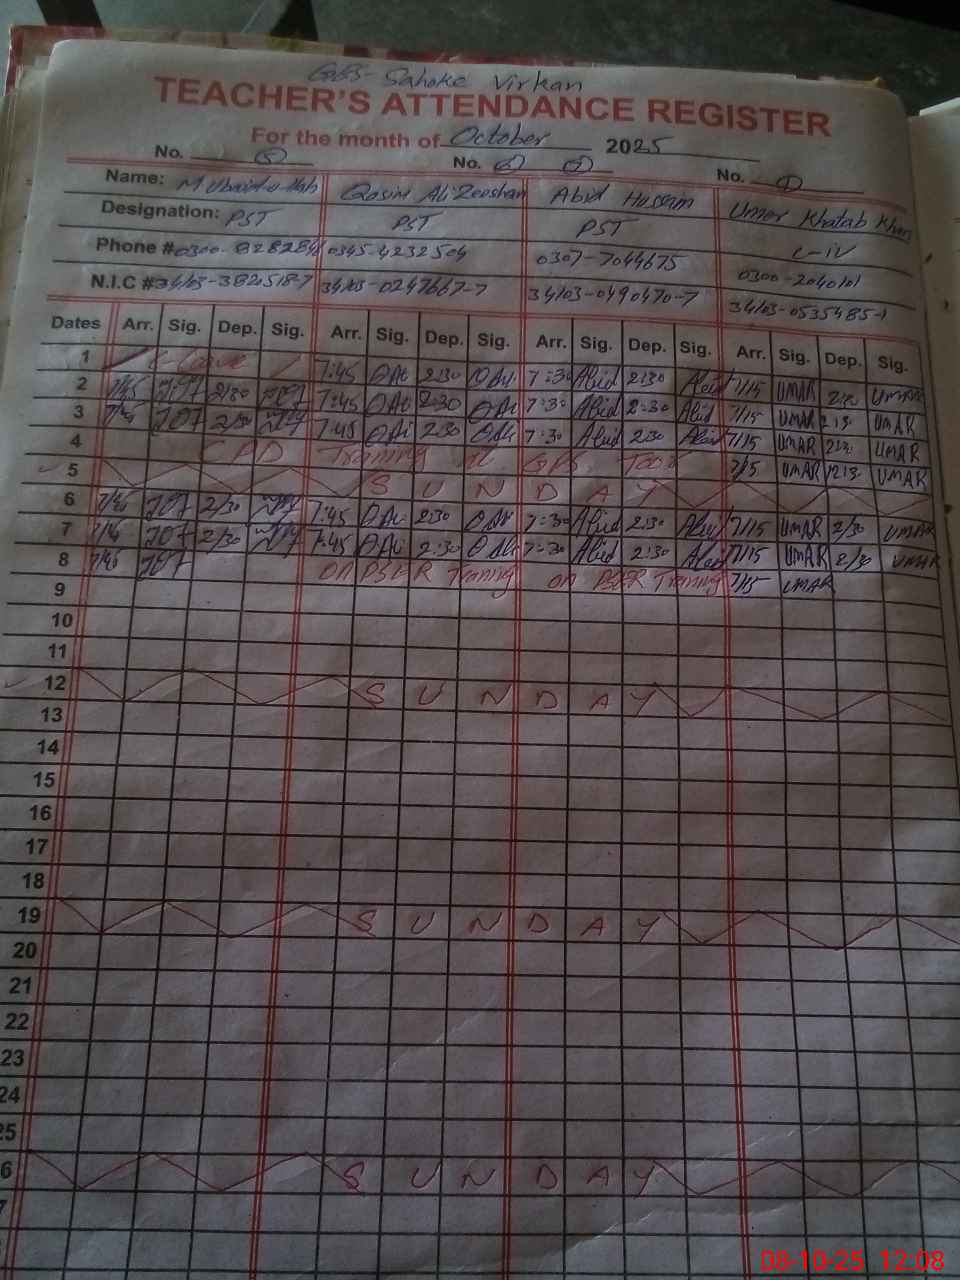 Sahoke Virkan
TEACHER'S ATTENDANCE REGISTER
For the month of October 2025
No. 5 No. No. 1
Name: Qasim Ali Zeeshan Abid Hussain Umer Khatab Khan
Designation: PST PST PST C-iv
Phone # 0345-4232504 0307-7044675 0300-2040101
N.I.C # 34103-3825518-7 34103-0247667-7 34103-0490470-7 34103-0535485-1
Dates Arr. Sig. Dep. Sig. Arr. Sig. Dep. Sig. Arr. Sig. Dep. Sig. Arr. Sig. Dep. Sig.
1 Leave 7:45 2:30 7:30 Abid 2:30 Abid 7/15 UMAR UMAR
2 7/45 2/30 7:45 2:30 7:30 Abid 2:30 Abid 7/15 UMAR UMAR
3 7/45 2/30 7:45 2:30 7:30 Abid 2:30 Abid 7/15 UMAR UMAR
4 CPD Training GPS 7/15 UMAR UMAR
5 SUNDAY
6 7/45 2/30 7:45 2:30 7:30 Abid 2:30 Abid 7/15 UMAR 2/30 UMAR
7 7/45 2/30 7:45 2:30 7:30 Abid 2:30 Abid 7/15 UMAR 2/30 UMAR
8 7/45 on PSER Training on PSER Training 7/15 UMAR
9
10
11
12 SUNDAY
13
14
15
16
17
18
19 SUNDAY
20
21
22
23
24
25
6 SUNDAY
7
08-10-25 12:08